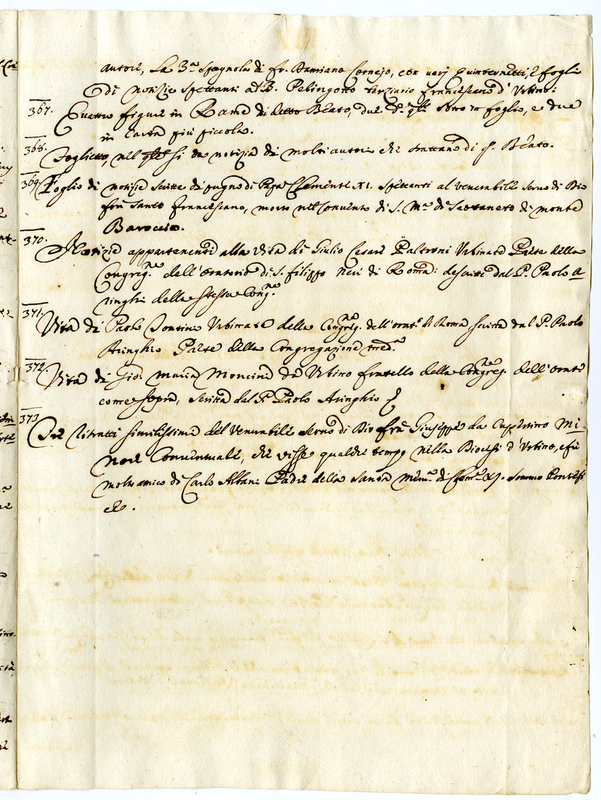 autori, La 3.ª Spagnola di fr. Damiano Cornejo, con varj quinternetti, e fogli
di notizie spettanti al B. Pelingotto terziario francescano d'Urbino:
367. Quattro figure in Rame di detto Beato, due sono in foglio, e due
in carta più piccola.
368. Foglietto, nel si da notizia di molti autori che trattano di d.º Beato.
369. Foglio di notizie scritte di pugno di Papa Clemente XI. spettanti al venerabile servo di Dio
fra Santo francescano, morto nel convento di S. M.ª di Scotaneto di monte
Baroccio.
370. Notizie appartenenti alla Vita di Giulio Cesare Paltroni Urbinate Prete della
Congreg.ne dell'oratorio di S. filippo neri di Roma: descritte dal P. Paolo A=
ringhi della stessa Cong.ne
371. Vita di Paolo Urbinate della Congreg.ne dell'orat.º di Roma scritta dal P. Paolo
Aringhio Prete della Congregazione med.ª
372. Vita di Gio: Maria da Urbino fratello della Congreg.ne dell'orat.º
come sopra, scritta dal P. Paolo Aringhio
373. Due Ritratti similissimi del Venerabile servo di Dio fra Giuseppe da Copertino Mi=
nore Conventuale, che visse qualche tempo nella Diocesi d'Urbino, e fu
molto amico di Carlo Albani Padre della Santa mem.ª di Clem.te XI. Sommo Pontefi
ce.